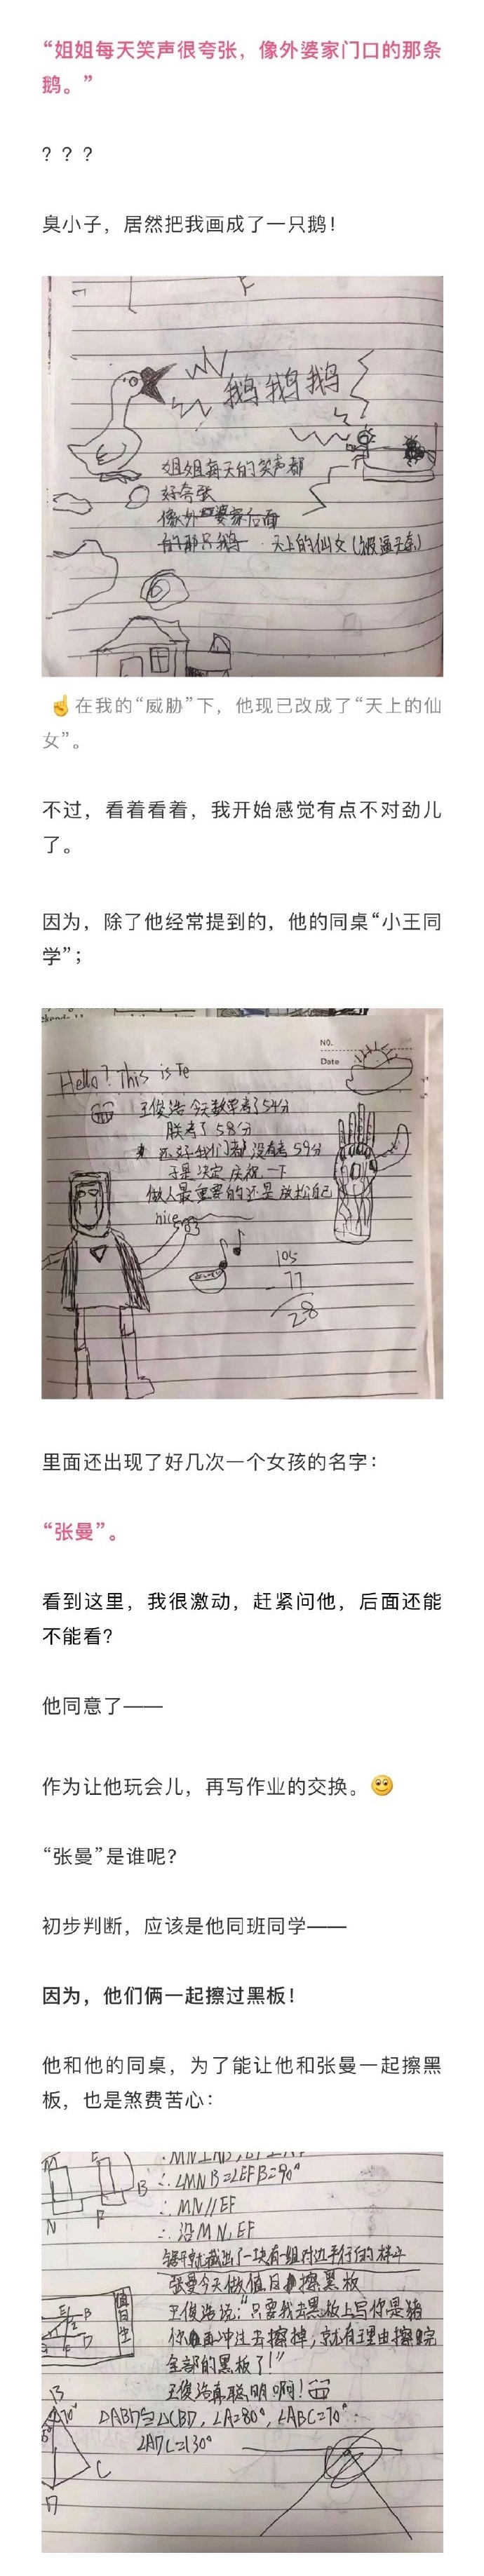 “姐姐每天笑声很夸张，像外婆家门口的那条
鹅。”
？？？
臭小子，居然把我画成了一只鹅！
鹅鹅鹅
姐姐每天的笑声都
好夸张
像外婆家后面
的那只鹅 天上的仙女（被逼无奈）
☝在我的“威胁”下，他现已改成了“天上的仙
女”。
不过，看着看着，我开始感觉有点不对劲儿
了。
因为，除了他经常提到的，他的同桌“小王同
学”；
NO.
Date
Hello? This is Te
王俊浩今天数学考了54分
朕考了58分
还好我们都没有考59分
于是决定庆祝一下
做人最重要的还是放松自己
nice
105
77
28
里面还出现了好几次一个女孩的名字：
“张曼”。
看到这里，我很激动，赶紧问他，后面还能
不能看？
他同意了——
作为让他玩会儿，再写作业的交换。🙂
“张曼”是谁呢？
初步判断，应该是他同班同学——
因为，他们俩一起擦过黑板！
他和他的同桌，为了能让他和张曼一起擦黑
板，也是煞费苦心：
∴∠MNB=∠EFB=90°
∴MN//EF
∴沿MN,EF
锯开就截出了一块有一组对边平行的木板
张曼今天做值日擦黑板
王俊浩说：“只要我去黑板上写你是猪
你再冲过去擦掉，就有理由擦完
全部的黑板了！”
王俊浩真聪明啊！
值日生
△ABD≌△CBD，∠A=80°，∠ABC=70°
∠ADC=130°